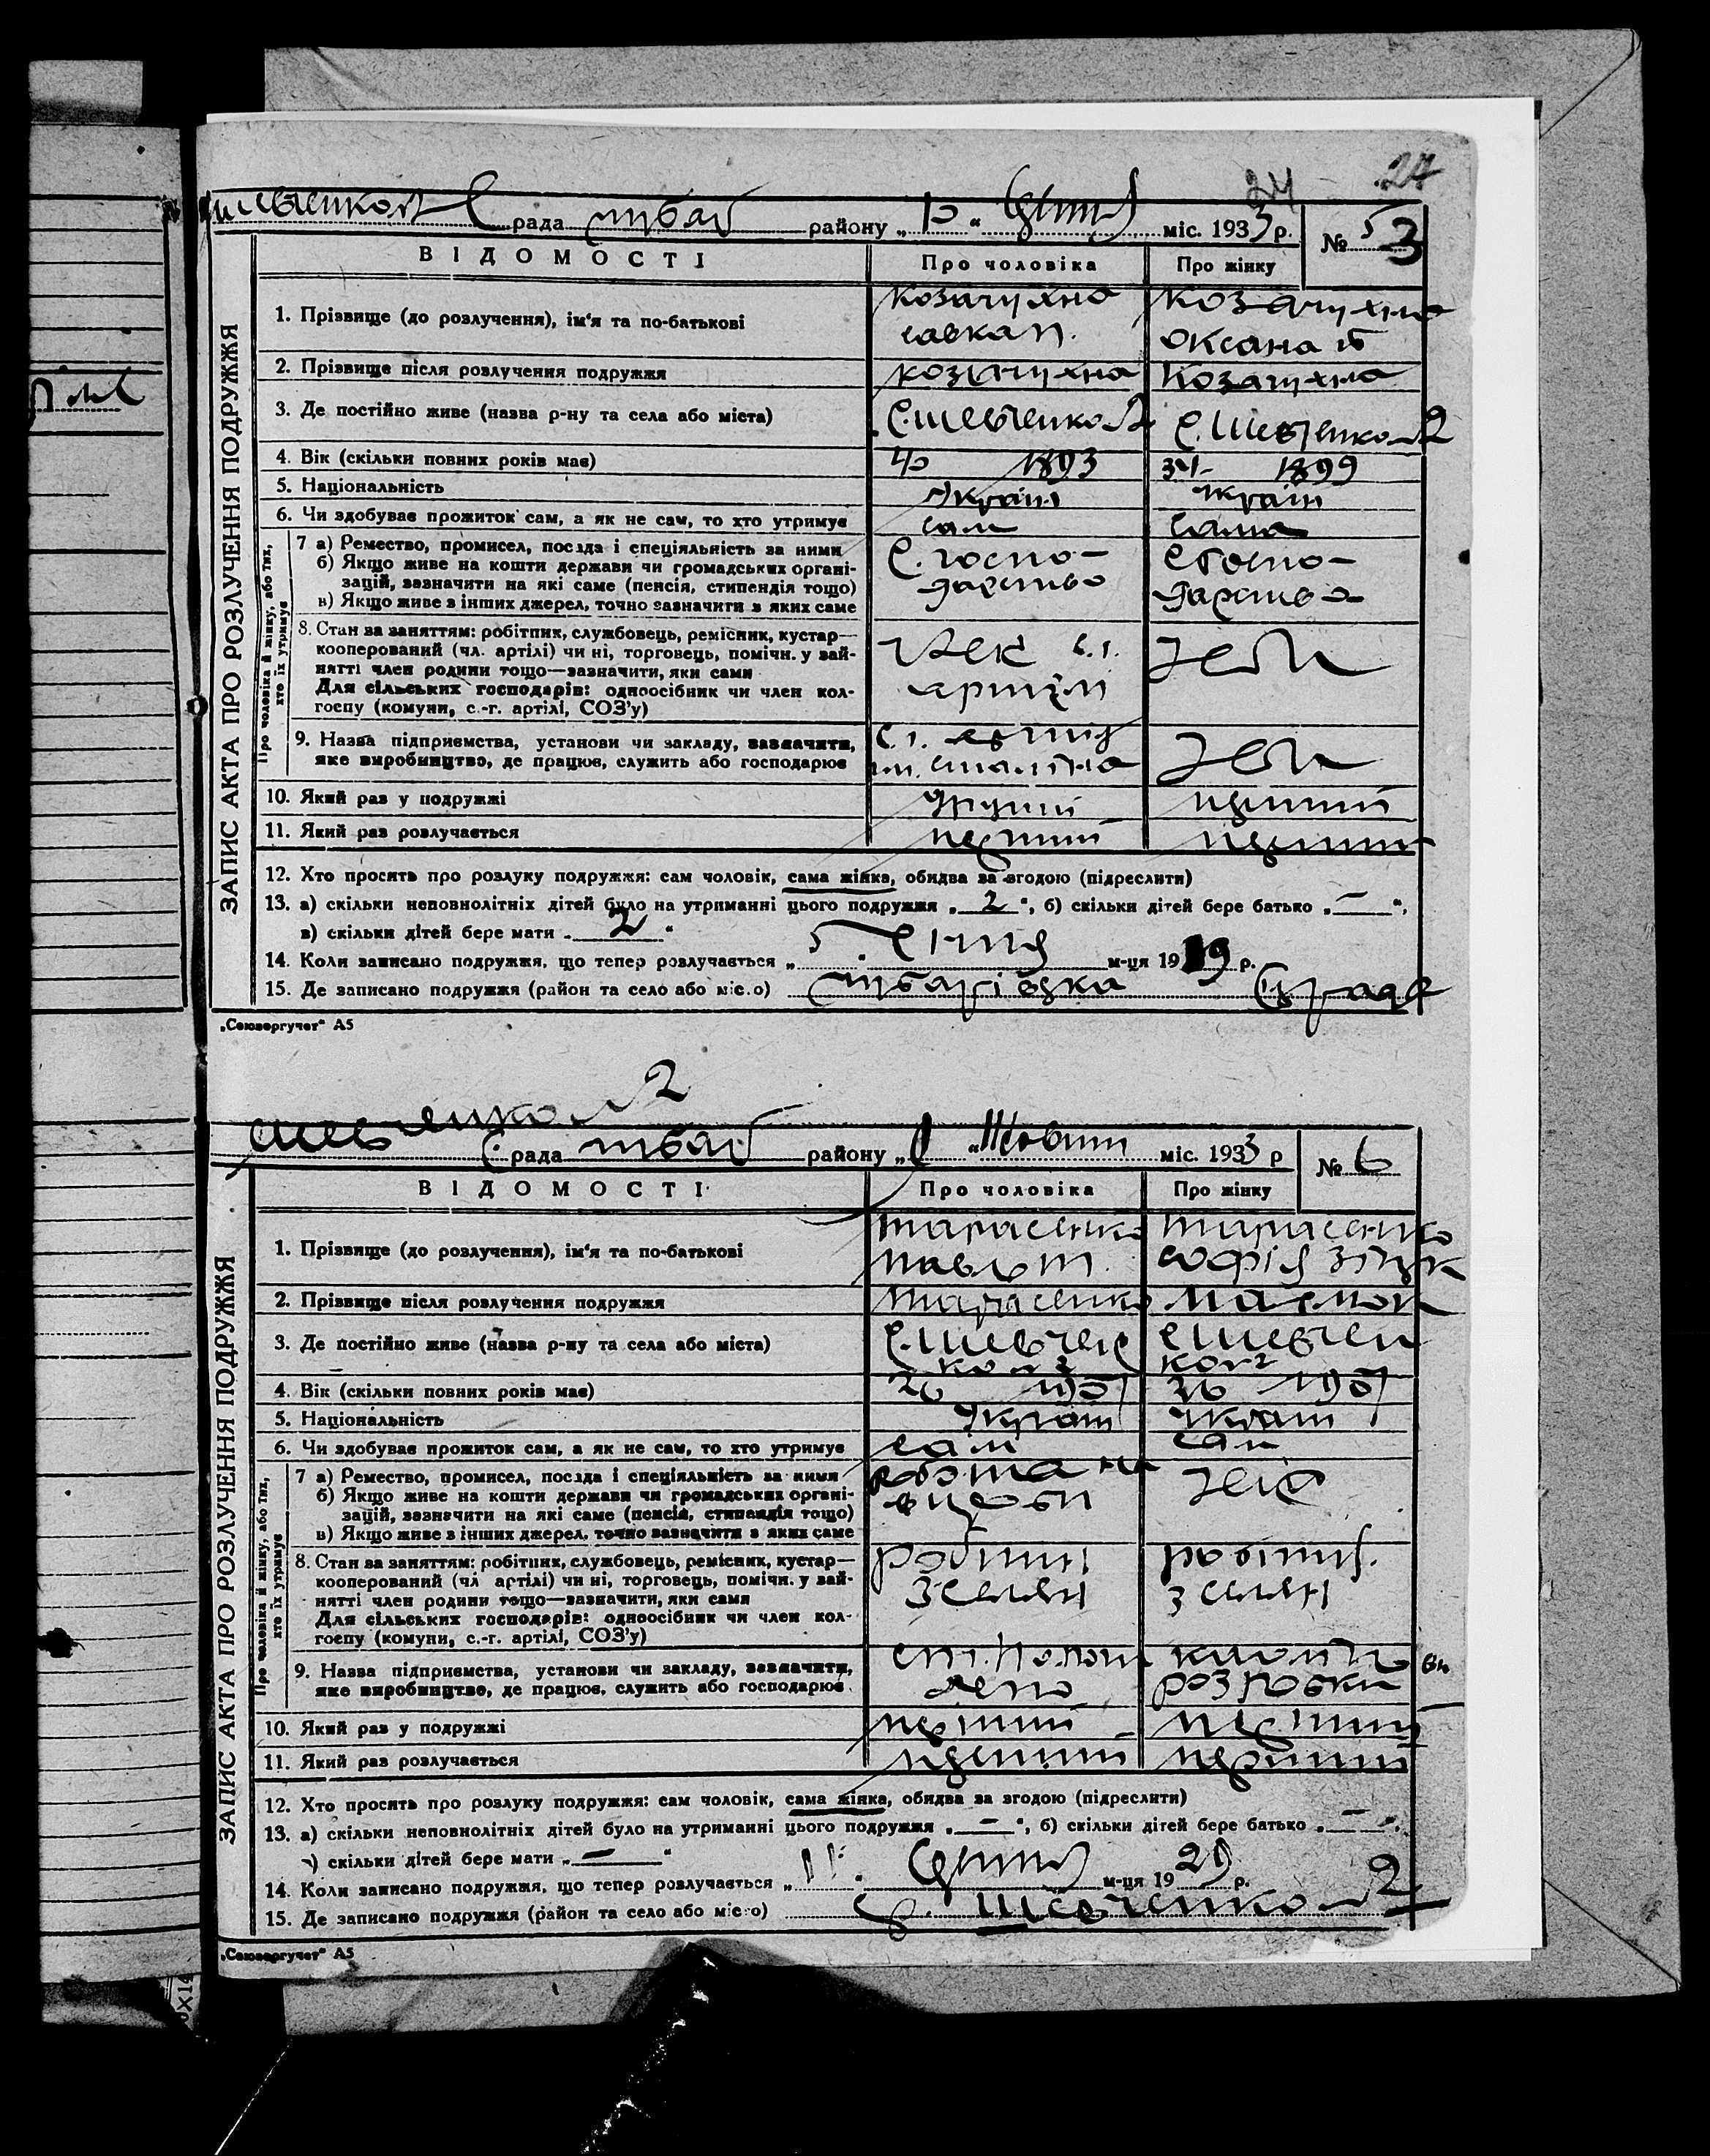 27
24
рада район у „10“ міс. 1933 р.
№ 53
ЗАПИС АКТА ПРО РОЗЛУЧЕННЯ ПОДРУЖЖЯ
ВІДОМОСТІ Про чоловіка Про жінку
1. Прізвище (до розлучення), ім'я та по-батькові
савка п. Оксана
2. Прізвище після розлучення подружжя
3. Де постійно живе (назва р-ну та села або міста)
4. Вік (скільки повних років має) 40 1893 34 1899
5. Національність Україн Україн
6. Чи здобуває прожиток сам, а як не сам, то хто утримує сам сама
Про чоловіка й жінку, або тих, хто їх утримує
7 а) Ремество, промисел, посада і спеціяльність за ними
б) Якщо живе на кошти держави чи громадських органі-
зацій, зазначити на які саме (пенсія, стипендія тощо)
в) Якщо живе з інших джерел, точно зазначити з яких саме
С. госпо- С госпо-
дарство дарство
8. Стан за заняттям: робітник, службовець, ремісник, кустар—
кооперований (чл. артілі) чи ні, торговець, помічн. у зай-
нятті член родини тощо—зазначити, яки сами
Для сільських господарів: одноосібник чи член кол-
госпу (комуни, с.-г. артілі, СОЗ'у)
9. Назва підприємства, установи чи закладу, зазначити,
яке виробництво, де працює, служить або господарює
10. Який раз у подружжі другий перший
11. Який раз розлучається перший перший
12. Хто просить про розлуку подружжя: сам чоловік, сама жінка, обидва за згодою (підреслити)
13. а) скільки неповнолітніх дітей було на утриманні цього подружжя „ 2 “, б) скільки дітей бере батько „ — “,
в) скільки дітей бере мати „ 2 “
14. Коли записано подружжя, що тепер розлучається „ 5 “ м-ця 19 19 р.
15. Де записано подружжя (район та село або місто)
„Союзоргучет“ А5
2
рада району „ “ Жовтня міс. 1933 р
№ 6
ЗАПИС АКТА ПРО РОЗЛУЧЕННЯ ПОДРУЖЖЯ
ВІДОМОСТІ Про чоловіка Про жінку
1. Прізвище (до розлучення), ім'я та по-батькові
Тарасенко Тарасенко
Павло т. Софія
2. Прізвище після розлучення подружжя Тарасенко
3. Де постійно живе (назва р-ну та села або міста)
С. Шевчен С Шевчен
ко № 2 ко № 2
4. Вік (скільки повних років має) 26 1907 26 1907
5. Національність Україн Україн
6. Чи здобуває прожиток сам, а як не сам, то хто утримує сам сам
Про чоловіка й жінку, або тих, хто їх утримує
7 а) Ремество, промисел, посада і спеціяльність за ними
б) Якщо живе на кошти держави чи громадських органі-
зацій, зазначити на які саме (пенсія, стипендія тощо)
в) Якщо живе з інших джерел, точно зазначити з яких саме
8. Стан за заняттям: робітник, службовець, ремісник, кустар—
кооперований (чл артілі) чи ні, торговець, помічн. у зай-
нятті член родини тощо—зазначити, яки сами
Для сільських господарів: одноосібник чи член кол-
госпу (комуни, с.-г. артілі, СОЗ'у)
з селян з селян
9. Назва підприємства, установи чи закладу, зазначити,
яке виробництво, де працює, служить або господарює
депо
10. Який раз у подружжі перший перший
11. Який раз розлучається перший перший
12. Хто просить про розлуку подружжя: сам чоловік, сама жінка, обидва за згодою (підреслити)
13. а) скільки неповнолітніх дітей було на утриманні цього подружжя „ — “, б) скільки дітей бере батько „ — “,
в) скільки дітей бере мати „ — “
14. Коли записано подружжя, що тепер розлучається „ 11 “ м-ця 19 29 р.
15. Де записано подружжя (район та село або місто) С. Шевченко № 2
„Союзоргучет“ А5